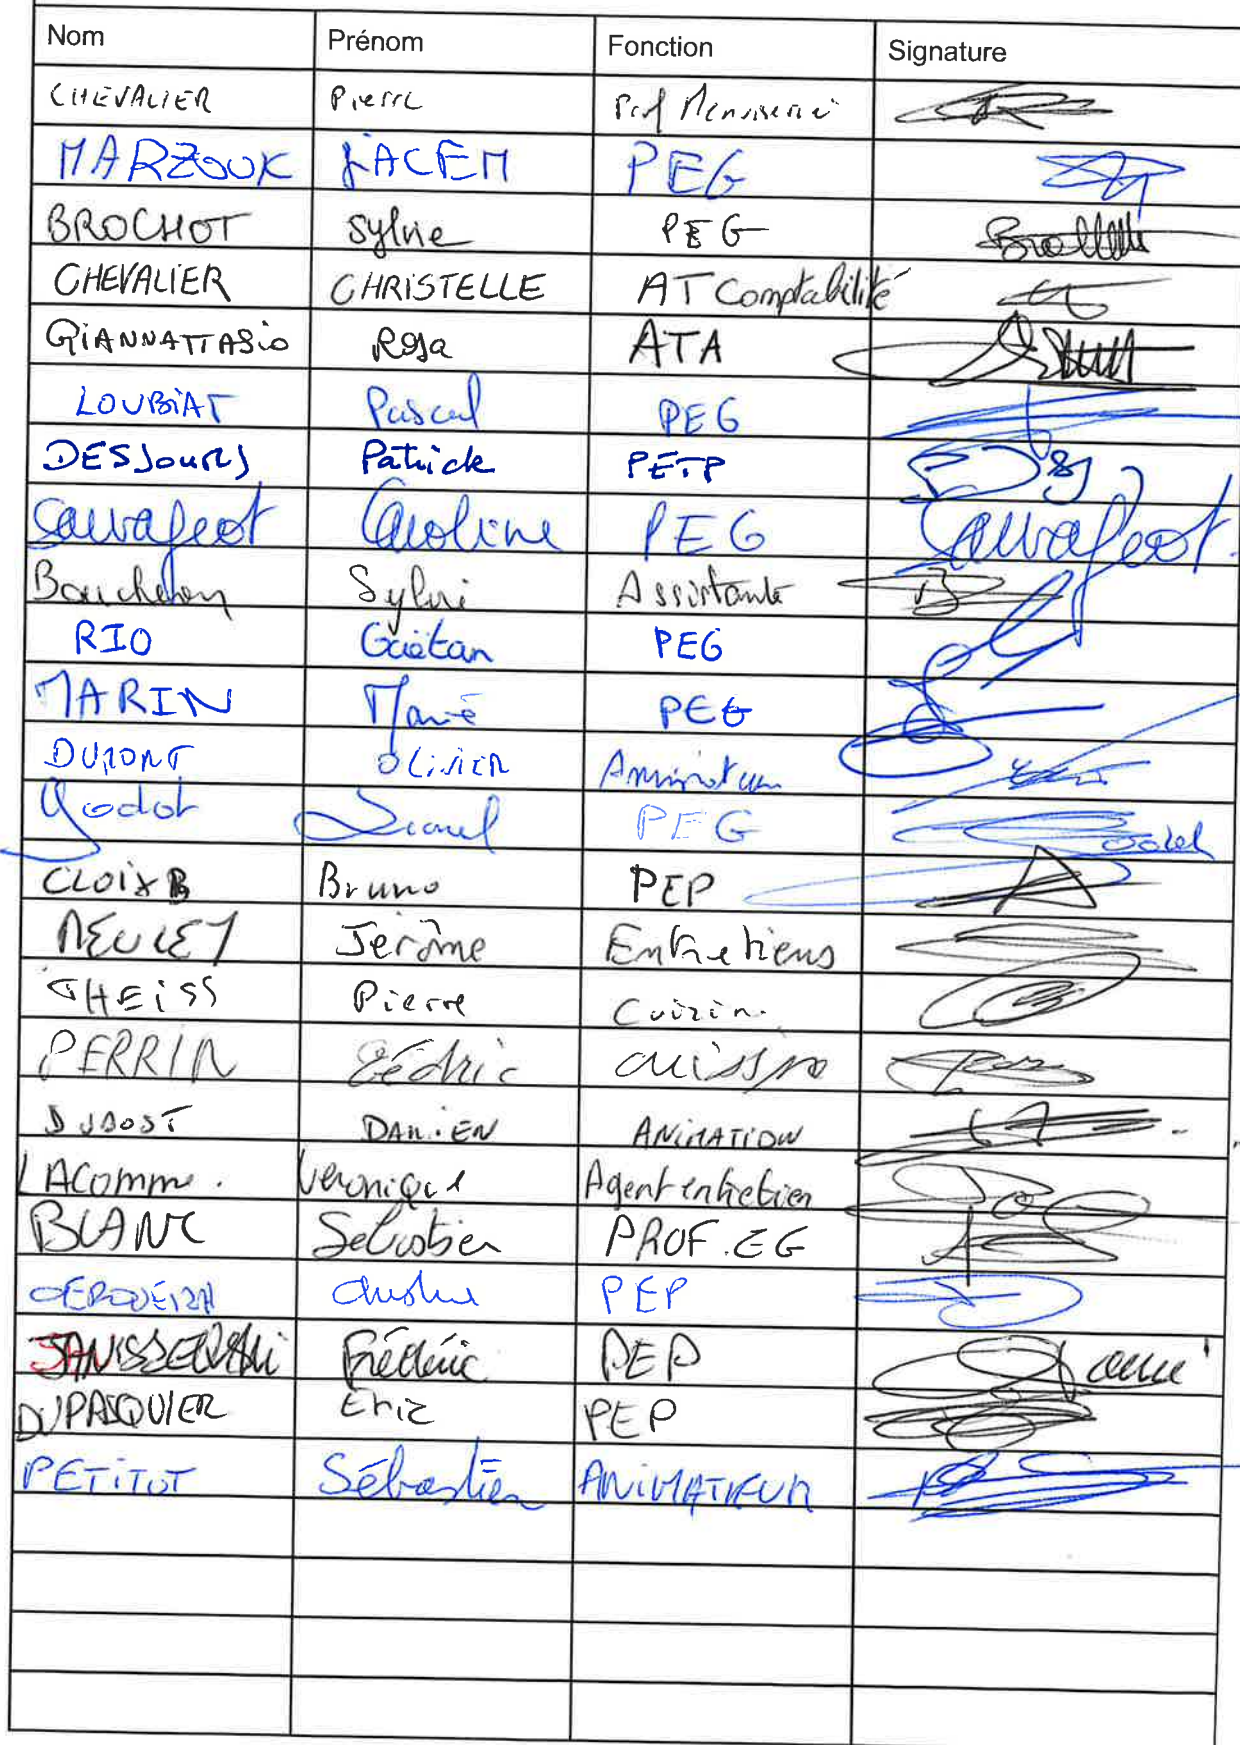 Nom Prénom Fonction Signature
CHEVALIER Pierre Prof Menuiserie
MARZOUK KACEM PEG
BROCHOT Sylvie PEG
CHEVALIER CHRISTELLE AT Comptabilité
GIANNATTASIO Rosa ATA
LOUBIAT Pascal PEG
DESJOURS Patrick PETP
Sauvageot Caroline PEG Sauvageot
Boucheron Sylvie Assistante
RIO Gaëtan PEG
MARIN Marie PEG
DUPONT OLIVIER Animateur
Godot Lionel PEG
CLOIX B Bruno PEP
Jérôme Entretiens
THEISS Pierre Cuisin.
PERRIN Cédric
DUBOST DAMIEN ANIMATION
LAComme. Veronique Agent entretien
BLANC Sebastien PROF.EG
PEP
Frédéric PEP
DUPASQUIER Eric PEP
PETITOT Sébastien ANIMATEUR